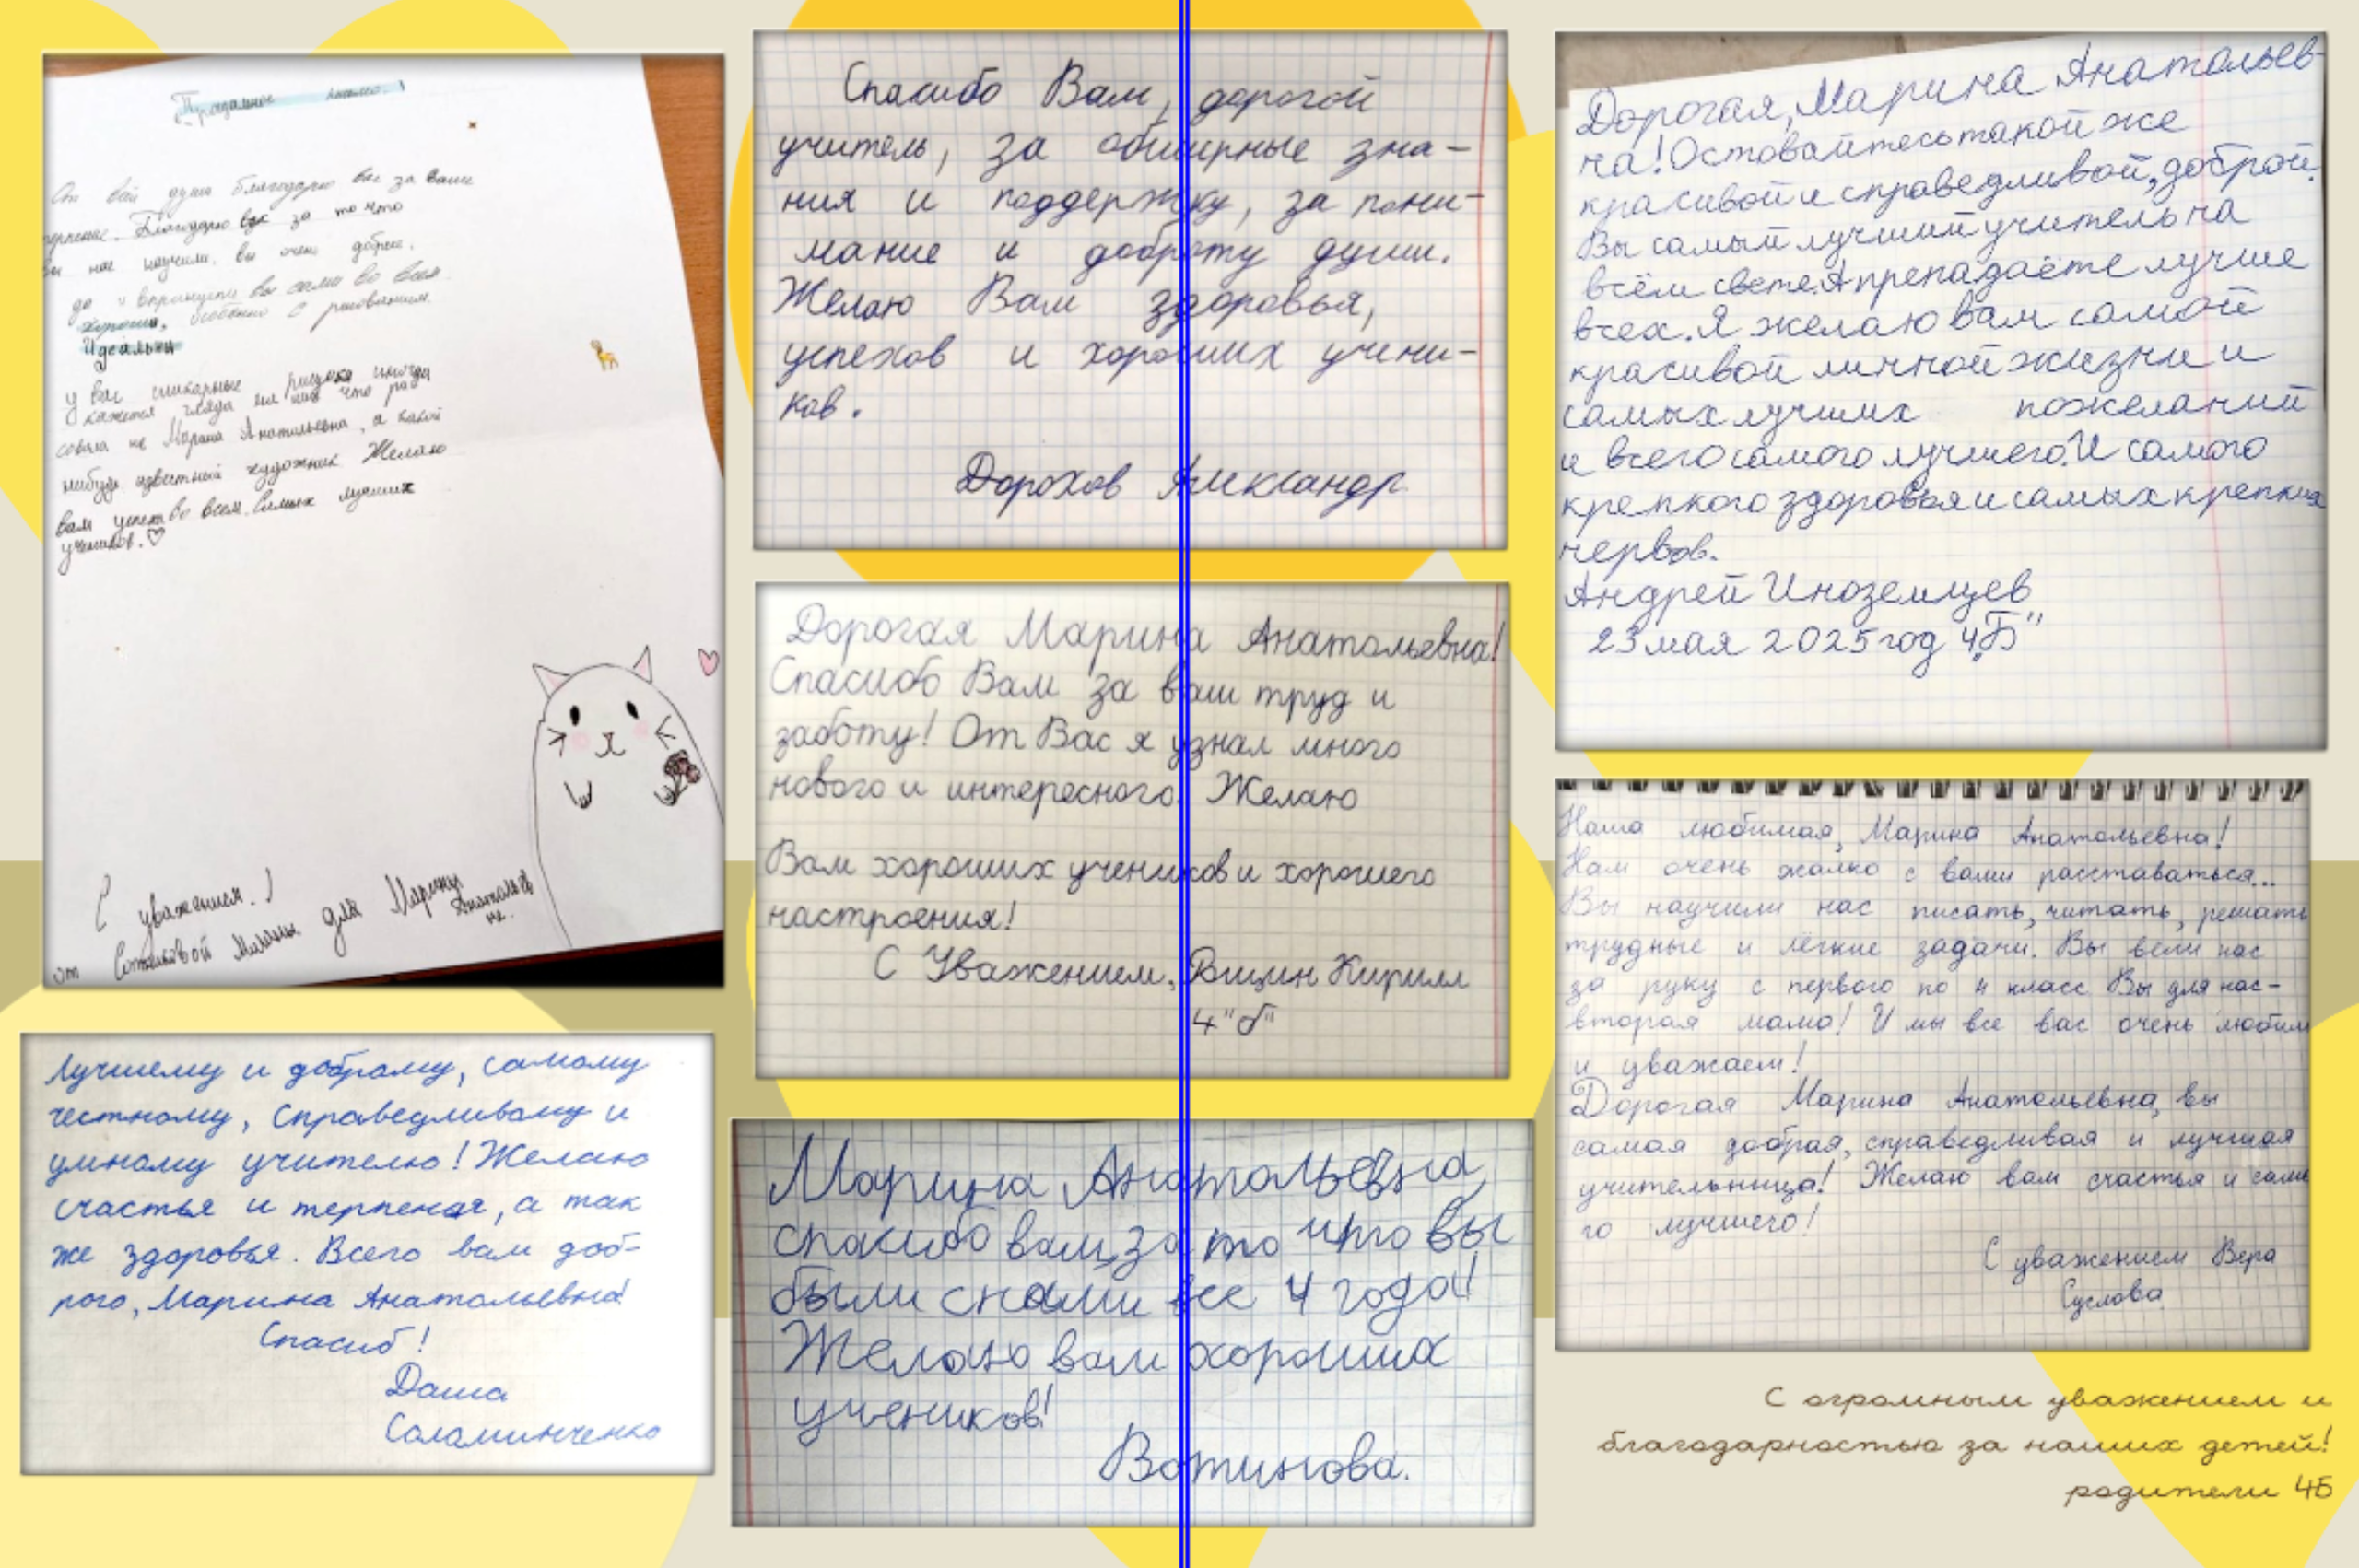 Прощальное письмо!
От вей души благодарю вас за ваше
терпение. Благодарю вас за то что
вы нас научили. вы очень добрые.
да и впринцепи вы сами во всем
хороши, особенно с рисованием.
Идеальны
у вас шикарные рисунки иногда
кажется глядя на них что ри
совала не Марина Анатольевна, а какой
нибудь известный художник. Желаю
вам успехов во всем. Самых лучших
учеников.♡
С уважением!
от Милании для Марины
Анатольев
не.
Лучшему и доброму, самому
честному, справедливому и
умному учителю! Желаю
счастья и терпения, а так
же здоровья. Всего вам доб-
рого, Марина Анатольевна!
Спасиб!
Даша
Саламинченко
Спасибо Вам, дорогой
учитель, за обширные зна-
ния и поддержку, за пони-
мание и доброту души.
Желаю Вам здоровья,
успехов и хороших учени-
ков.
Дорохов Александр
Дорогая Марина Анатольевна!
Спасибо Вам за ваш труд и
заботу! От Вас я узнал много
нового и интересного. Желаю
Вам хороших учеников и хорошего
настроения!
С Уважением, Рощин Кирилл
4"б"
Марина Анатольевна,
спасибо вам, за то что вы
были с нами все 4 года!
Желаю вам хороших
учеников!
Вотинова.
Дорогая, Марина Анатольев-
на! Оставайтесь такой же
красивой и справедливой, доброй.
Вы самый лучший учитель на
всём свете. А препадаёте лучше
всех. Я желаю вам самой
красивой личной жизни и
самых лучших пожеланий
и всего самого лучшего. И самого
крепкого здоровья и самых крепких
нервов.
Андрей Иноземцев
23 мая 2025 год 4„Б"
Наша любимая, Марина Анатольевна!
Нам очень жалко с вами расставаться...
Вы научили нас писать, читать, решать
трудные и лёгкие задачи. Вы вели нас
за руку с первого по 4 класс Вы для нас-
вторая мама! И мы все вас очень любим
и уважаем!
Дорогая Марина Анатольевна, вы
самая добрая, справедливая и лучшая
учительница! Желаю вам счастья и само
го лучшего!
С уважением Вера
Суслова
С огромным уважением и
благодарностью за наших детей!
родители 4Б